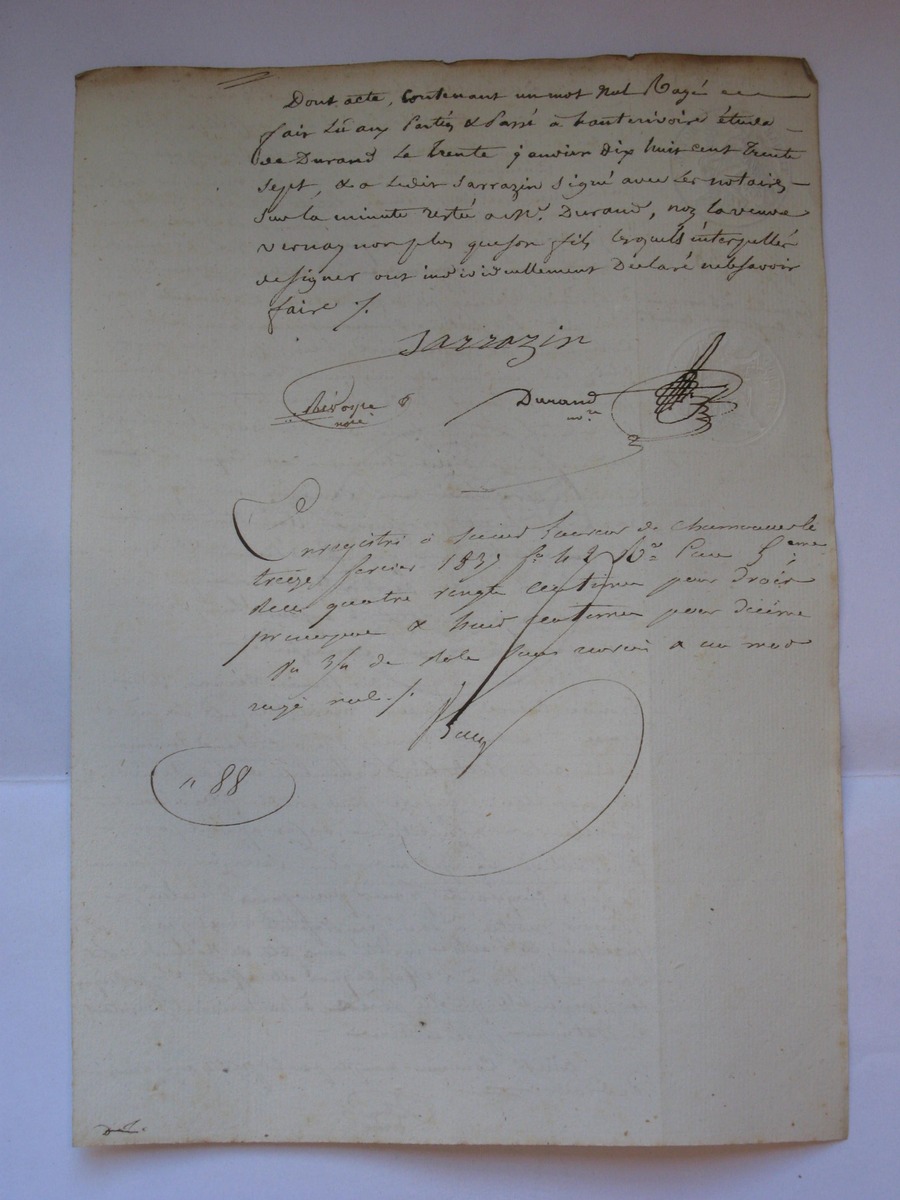 Dont acte, Contenant un mot Nul Rayé
fait Lû aux Parties & Passé à hauterivoire étude
de Durand Le Trente janvier dix huit cent Trente
sept, & a Ledit Sarrazin signé avec Les notaires
Sur la minute restée a Mr. Durand, non la veuve
vernay non plus que son fils lesquels interpellés
de signer ont individuellement Déclaré ne le savoir
faire ./.
Sarrazin
nore
Durand
nre
Enregistré à Saint Laurent de Chamousset le
treize fevrier 1837 fo 42 Vo Case 5eme
Reçu quatre vingts centimes pour droit
principal & huit centimes pour décime
de Role sans renvoi & un mot
rayé nul ./.
" 88